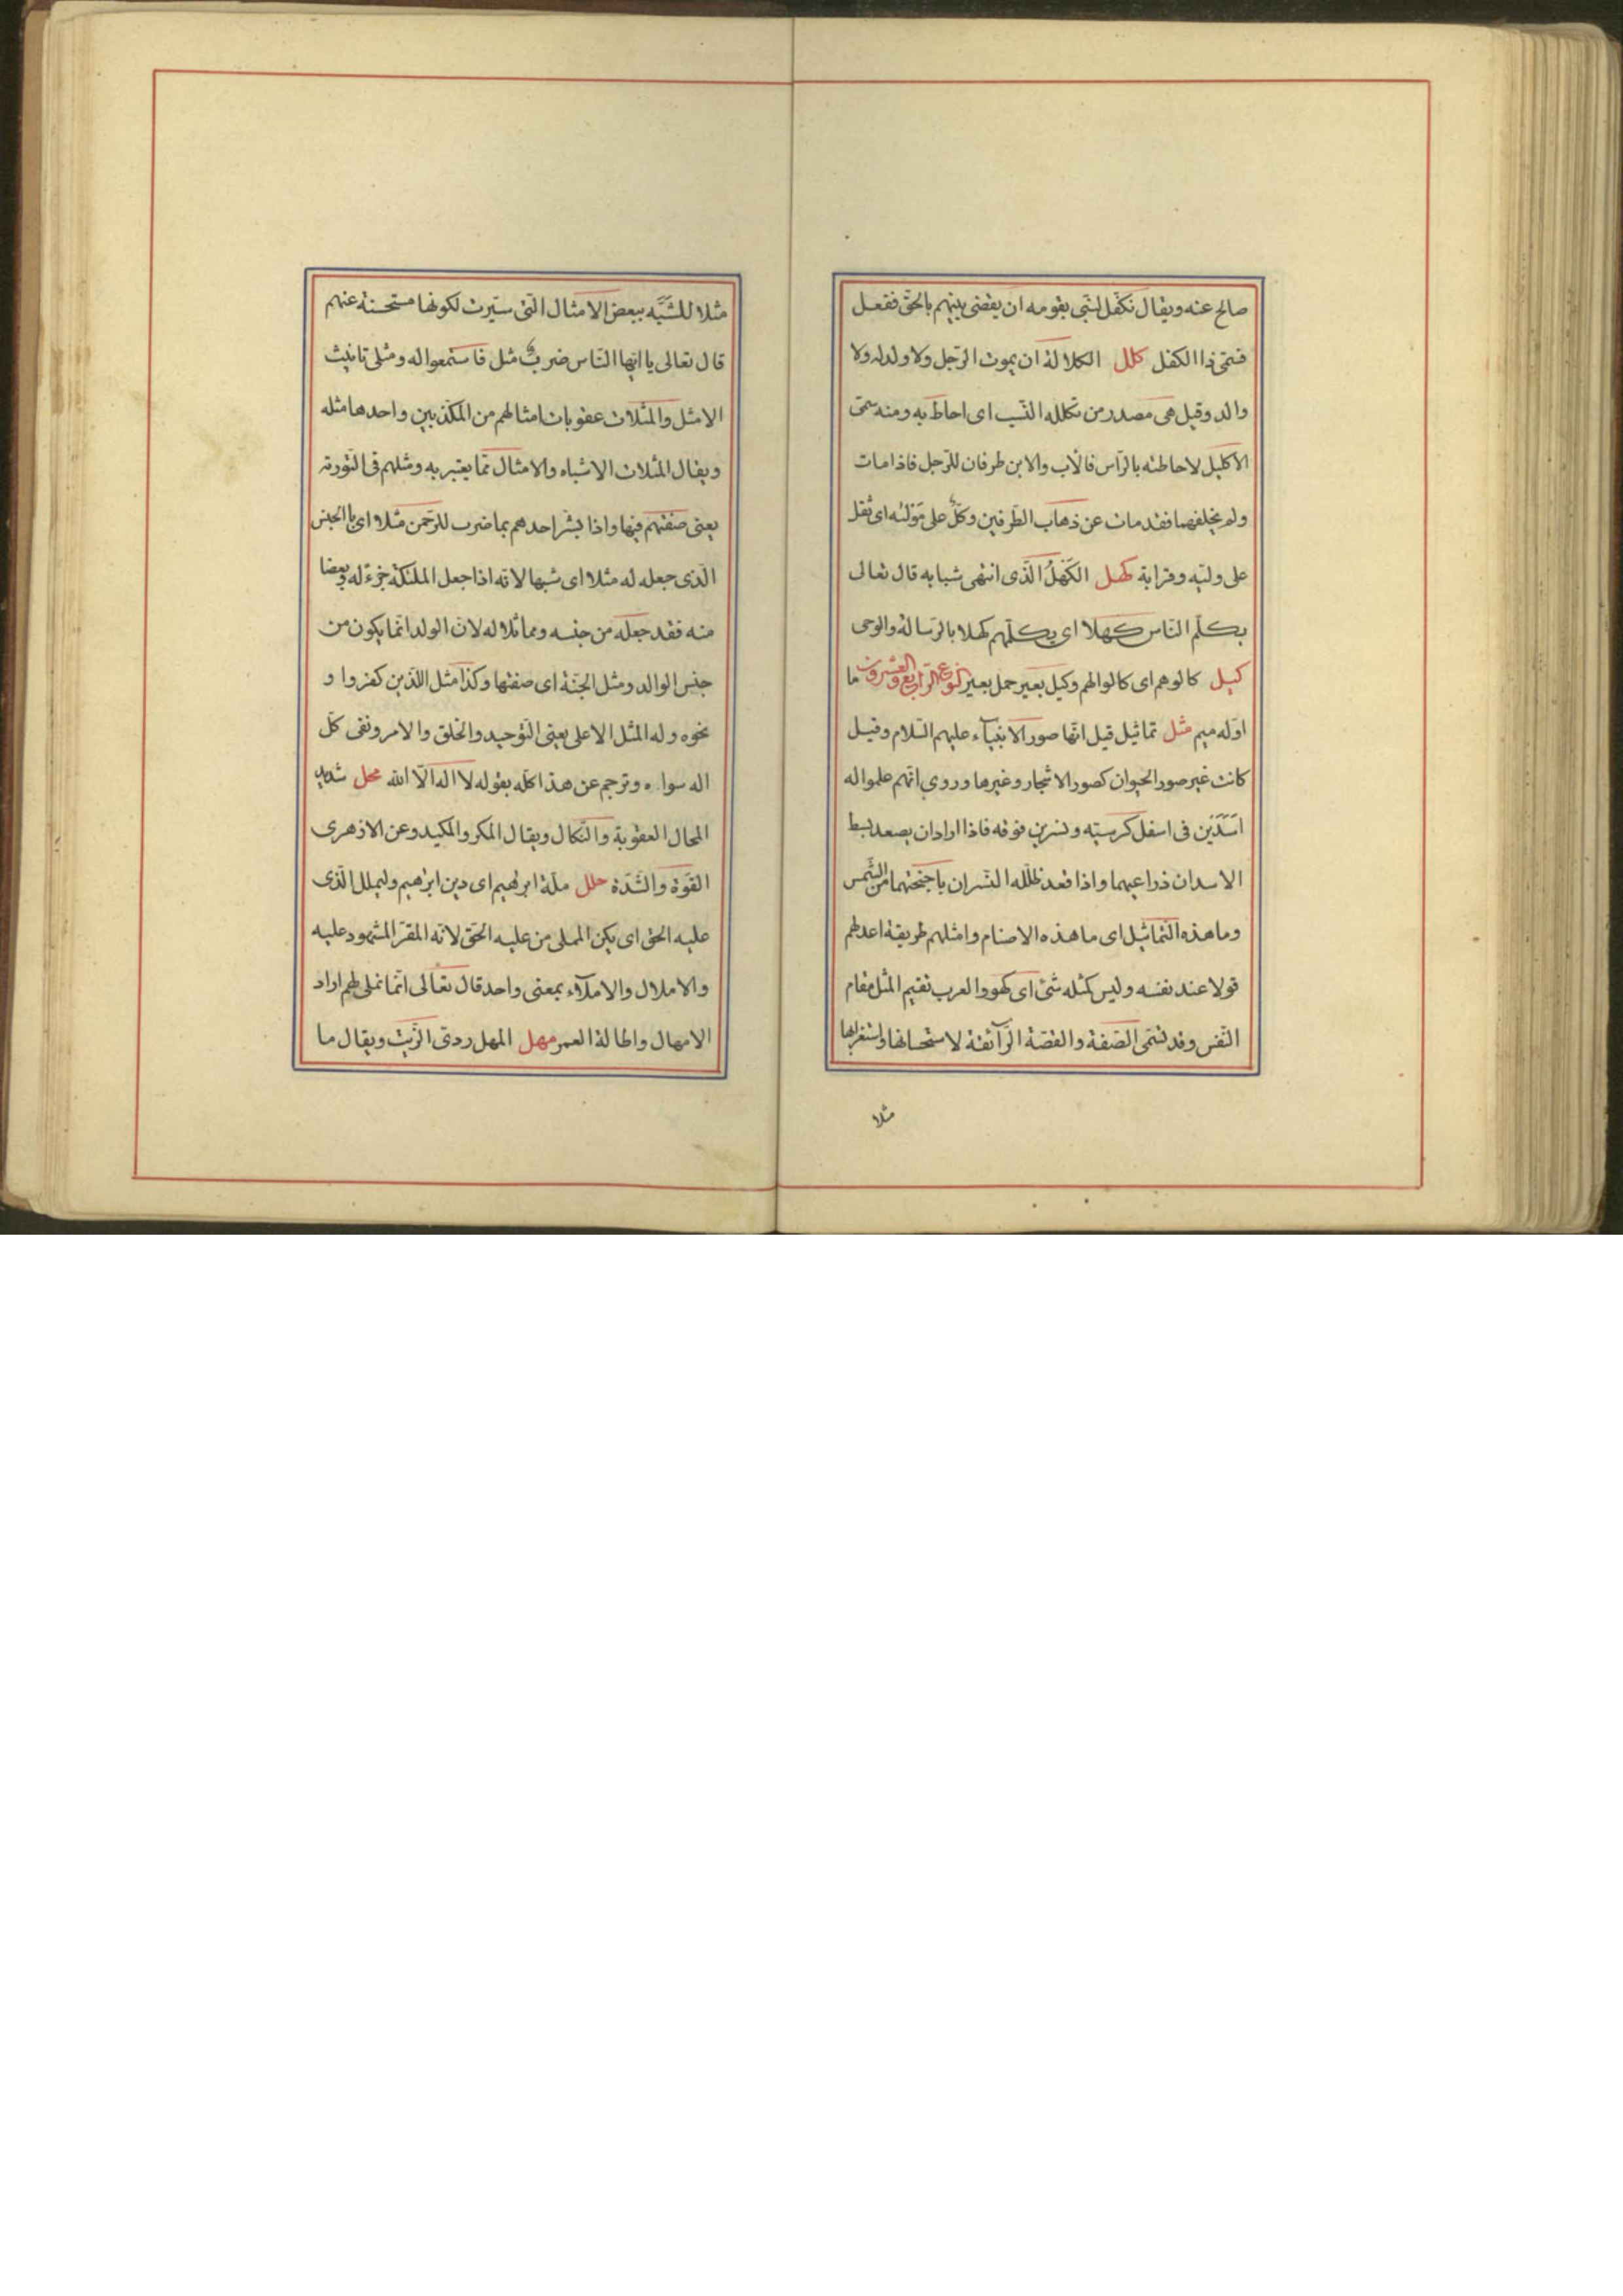 صالح عنه ويقال تكفل لنبي بقومه ان يقضي بينهم بالحق ففعل
فسمّى ذا الكفل كلل الكلالة ان يموت الرّجل ولا ولد له ولا
والد وقيل هي مصدر من تكلله النّسب اى احاط به ومنه سمّى
الاكليل لاحاطته بالرّاس فالأب والابن طرفان للرّجل فاذا مات
ولم يخلفهما فقد مات عن ذهاب الطّرفين وكَلٌّ على مَوْلیٰه اى ثقل
على وليّه وقرابة كهل الكَهْلُ الّذى انتهى شبابه قال تعالى
يكلّم النّاس كهلا اى يكلّمهم كهلا بالرّسالة والوحى
كيل كالوهم اى كالوا لهم وكيل بعير حمل بعير النّوع الرّابع والعشرون ما
اوّله ميم مثل تماثيل قيل انّها صور الانبيآء عليهم السّلام وقيل
كانت غير صور الحيوان كصور الاشجار وغيرها وروي انّهم عملوا له
اسَدَيْن فى اسفل كرسيّه ونسرين فوقه فاذا اراد ان يصعد بسط
الاسدان ذراعيهما واذا قعد ظلّله النّسران باجنحتهما من الشّمس
وما هذه التّماثيل اى ما هذه الاصنام وامثلهم طريقة اعدلهم
قولا عند نفسه وليس كمثله شئ اى كهو والعرب تقيم المثل مقام
النّفس وقد تسمّى الصّفة والقصّة الرّآئقة لاستحسانها واستغرابها
مثلا
مثلا للشَّبَّه ببعض الامثال الّتى سيّرت لكونها مستحسنة عنهم
قال تعالى يا ايّها النّاس ضرب مثل فاستمعوا له ومثلى تانيث
الامثل والمثلات عقوبات امثالهم من المكذّبين واحدها مثله
ويقال المثلات الاشباه والامثال ممّا يعتبر به ومثلهم فى التّورية
يعنى صفتهم فيها واذا بشّر احدهم بما ضرب للرّحمن مثلا اى بالجنس
الّذى جعله له مثلا اى شبها لانّه اذا جعل الملئكة جزءً له وبعضا
منه فقد جعله من جنسه ومماثلا له لانّ الولد انّما يكون من
جنس الوالد ومثل الجنّة اى صفتها وكذا مثل الّذين كفروا و
نحوه وله المثل الاعلى يعنى التّوحيد والخلق والامر ونفى كلّ
اله سواه وترجم عن هذا كلّه بقوله لا اله الّا الله محل شديد
المحال العقوبة والنّكال ويقال المكر والمكيد وعن الازهرى
القوّة والشّدّة ملل ملّة ابرهيم اى دين ابرهيم وليملل الّذى
عليه الحق اى يكن المملى من عليه الحقّ لانّه المقرّ المشهود عليه
والاملال والاملآء بمعنى واحد قال تعالى انّما نملى لهم اراد
الامهال واطالة العمر مهل المهل ردىّ الزّيت ويقال ما